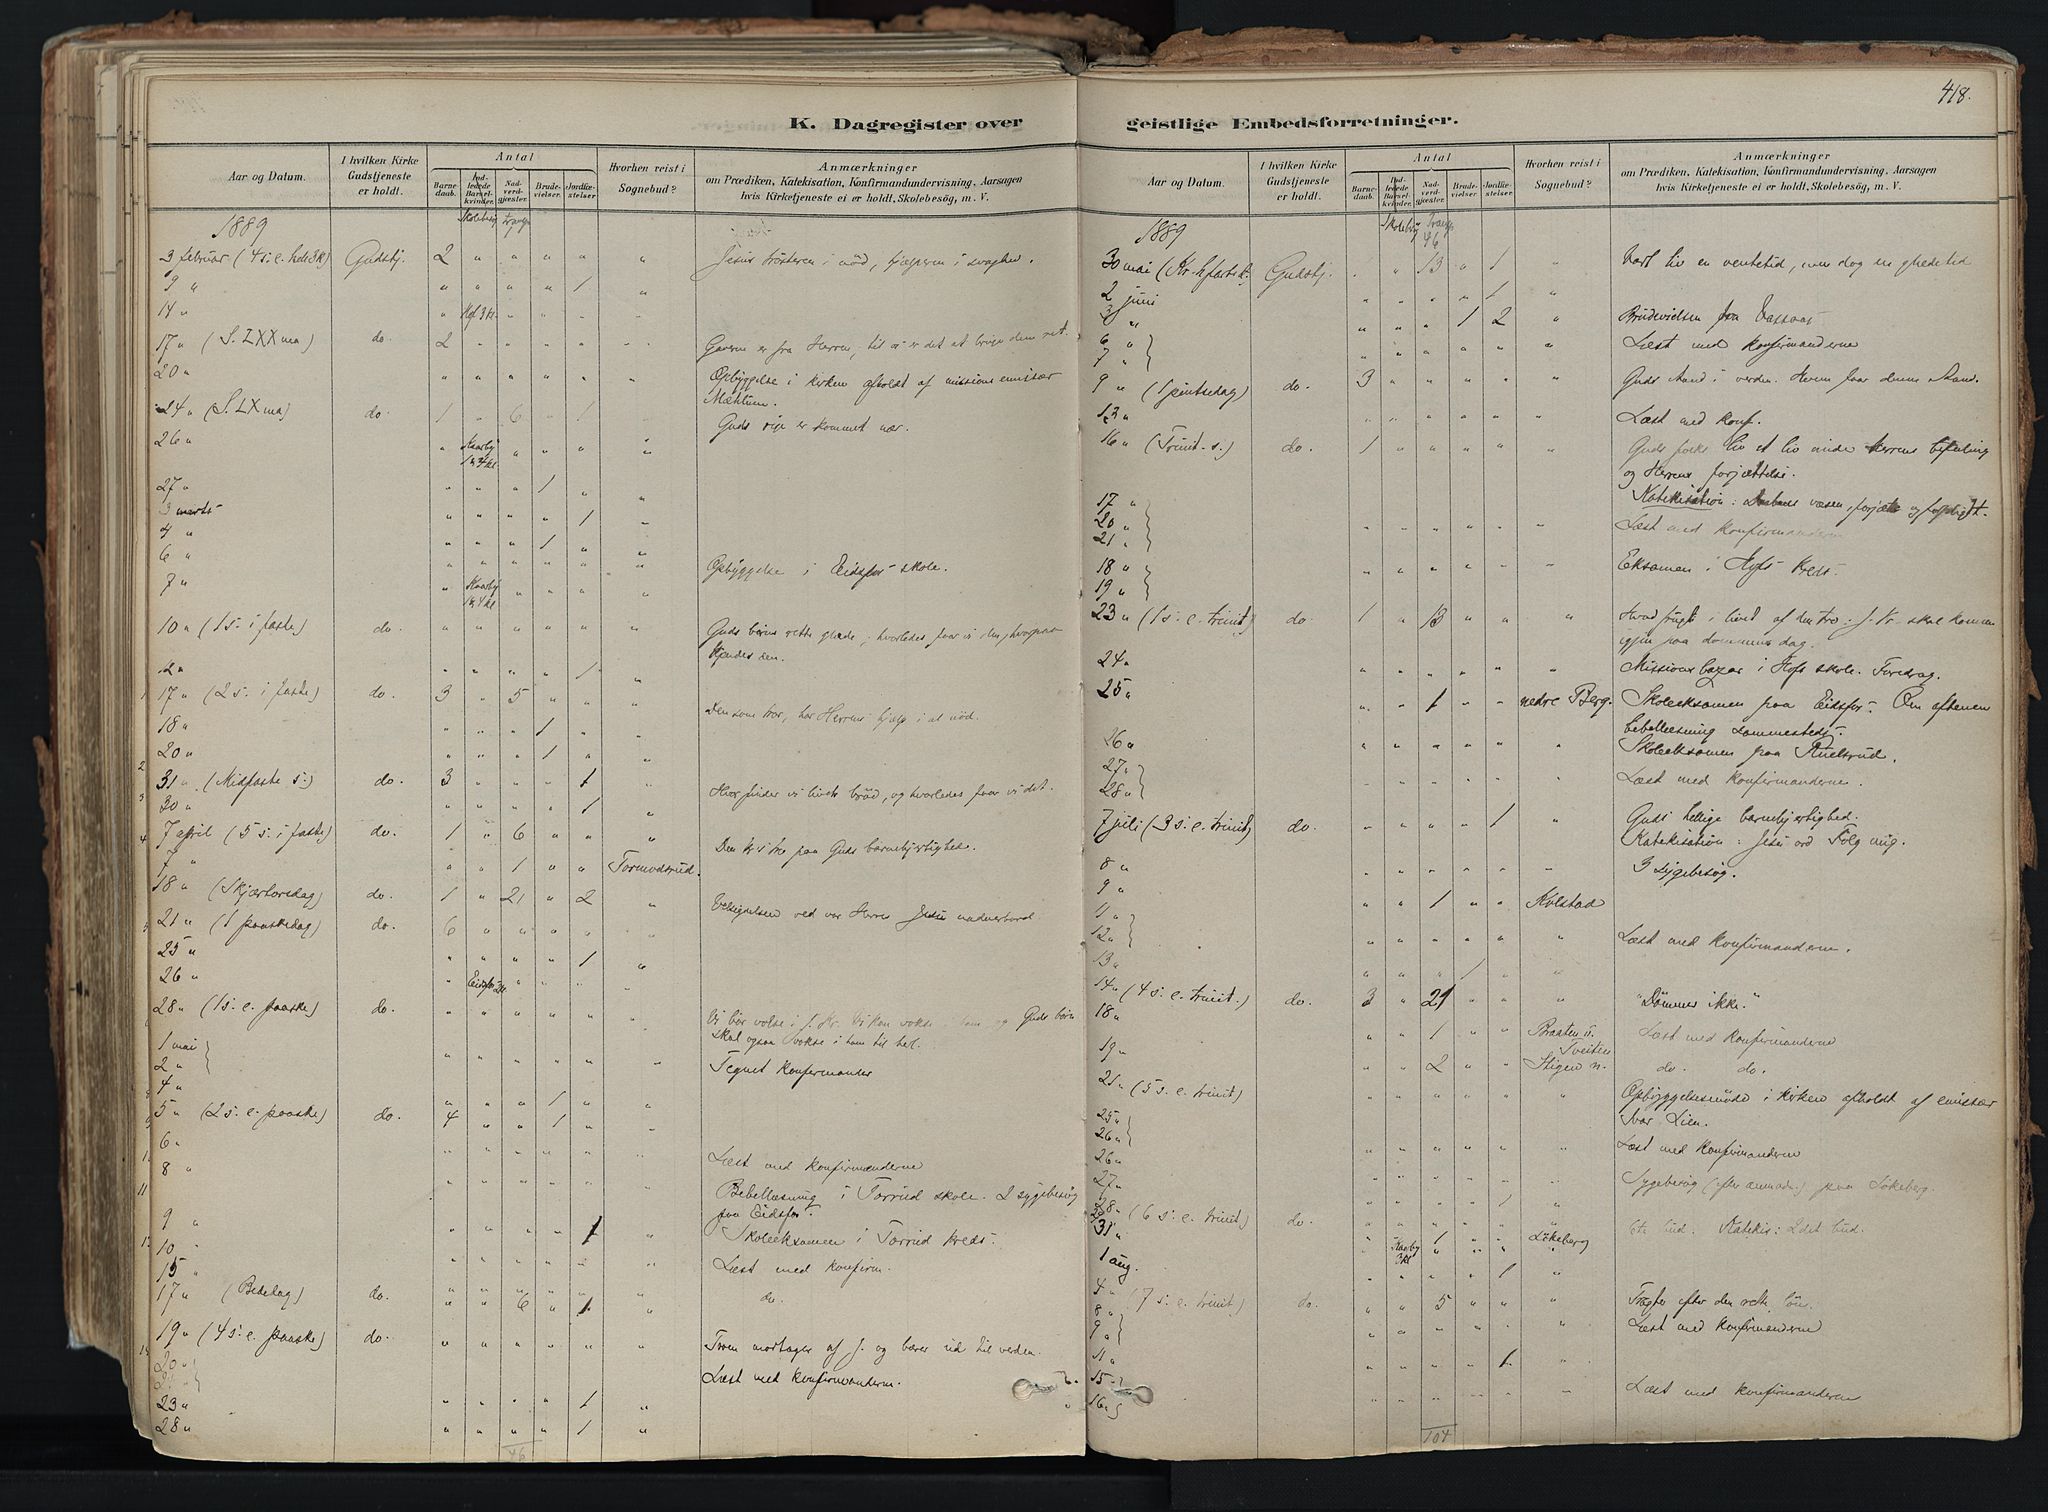 418.
K. Dagregister over geistlige Embedsforretninger.
Aar og Datum.
I hvilken Kirke Gudstjeneste er holdt.
Antal
Barnedaab.
Indledede Barselkvinder.
Nadverdgjæster.
Brudevielser.
Jordfæstelser
Hvorhen reist i Sognebud?
Anmærkninger
om Prædiken, Katekisation, Konfirmandundervisning, Aarsagen
hvis Kirketjeneste ei er holdt, Skolebesög, m. V.
1889 Skolebesøg
3 februar (4 s. e. hel. 3 k) Gudstj. 2 " " " " " Jesus trösteren i nöd, hjælperen i svaghed.
9 " " " " " 1 "
14 " " Hof 3 kl. " " " "
17 " (S. LXXma) do. 2 " " " " " Gaverne er fra Herren, til os er det at bruge dem ret.
20 " " " " " " " Opbyggelse i kirken afholdt af missions emissær
Mæhlum.
24 " (S. LXma) do. 1 " 6 " 1 Guds rige er kommet nær.
26 " " Kaarby " " " "
27 " " " " 1 " "
3 marts " " " " 1 "
4 " " " " 1 " "
6 " " " " " " " Opbyggelse i Eidsfos skole.
7 " " Kaarby " " " "
10 " (1 s. i faste) do. " " " " " " Guds börns rette glæde, hvorledes faar vi den, hvorpaa
kjendes den.
12 " " " " " 1 "
17 " (2 s. i faste) do. 3 " 5 " " " Den som tror, har Herrens hjælp i al nöd.
18 " " " " 1 " "
20 " " " " 1 " "
31 " (Midfaste s.) do. 3 " " " 1 " Hvor finder vi livets bröd, og hvorledes faar vi det.
30 " " " " " 1 "
7 april (5 s. i faste) do. 1 " 6 " " " Den kristne paa Guds barmhjertighed.
7 " " " 1 " " Tormodsrud.
18 " (Skjærtorsdag) do. 1 " 21 " 2 " Velsignelsen ved vor Herres Jesu nadverbord
21 " (1 paaskedag) do. 6 " " " " "
25 " " " " " 1 "
26 " " Eidsfos 2 kl. " " " "
28 " (1 s. e. paaske) do. " " " " " " Vi bör vokse i J. Kr. Vi kan vokse og Guds börn
skal ogsaa vokse i ham til hel.
1 mai }
2 " } " " " " " " Tegnet Konfirmander
4 " " " " 1 " "
5 " (2 s. e. paaske) do. 4 " " 1 " "
6 " " " " " " " Læst med konfirmanderne
8 " " " " " " " Bibellæsning i Torrud skole. 2 sygebesög
paa Eidsfos.
9 " " " " " 1 " Skoleeksamen i Torrud kreds.
10 "
15 " " " " " " " Læst med konfirm.
17 " (Bededag) do. " " 6 " 1 " do.
19 " (4 s. e. paaske) do. " " " " " " Troen modtager af J. og bærer ud til verden.
20 " }
21 " } Læst med konfirmanderne.
23 " " " " " 1 "
28 " " " " " 1 "
46
Aar og Datum.
I hvilken Kirke Gudstjeneste er holdt.
Antal
Barnedaab.
Indledede Barselkvinder.
Nadverdgjæster.
Brudevielser.
Jordfæstelser
Hvorhen reist i Sognebud?
Anmærkninger
om Prædiken, Katekisation, Konfirmandundervisning, Aarsagen
hvis Kirketjeneste ei er holdt, Skolebesög, m. V.
1889 Skolebesøg 46
30 mai (Kr. h.fartsd.) Gudstj. " " 13 " 1 " Vort liv en ventetid, men dog en glædetid
2 juni " " " " 1 "
3 " " " " 1 2 " Brudevielsen fra Vassaas
6 " }
7 " } " " " " " " Læst med konfirmanderne
9 " (1 pintsedag) do. 3 " " " " " Guds Aand i verden. Hvem faar denne Aand.
13 " " " " " " " Læst med konf.
16 " (Trinit. s.) do. 1 " " " " " Guds folks liv et liv under Herrens befaling
og Herrens forjættelse.
Katekisation: Daabens væsen, forjæt. og
17 " }
20 " }
21 " } " " " " " " Læst med konfirmanderne
18 " }
19 " } " " " " " " Eksamen i Hofs kreds.
23 " (1 s. e. trinit) do. 1 " 13 " " " Hvad frugt i livet af den tro: J. Kr. skal komme
igjen paa dommens dag.
24 " " " " " " " Missionsbazar i Hofs skole. Foredrag.
25 " " " 1 " " nedre Berg. Skoleeksamen paa Eidsfos. Om aftenen
bibellæsning sammesteds.
26 " " " " " " " Skoleeksamen paa
27 " }
28 " } " " " " " Læst med konfirmanderne.
7 juli (3 s. e. trinit) do. " " " " 1 " Guds hellige barmhjertighed.
Katekisation: Jesu ord Fölg mig.
8 " " " " " " " 3 Sygebesög.
9 " " " 1 " " Kolstad
11 " }
12 " } " " " " " " Læst med konfirmanderne.
13 " " " " 1 " "
14 " (4 s. e. trinit.) do. 3 " 21 " " " "Dömmer ikke."
18 " " " 1 " " Braaten u. Tveiten Læst med konfirmanderne
19 " " " 2 " " Stigen n. do. do.
21 " (5 s. e. trinit) " " " " " " Opbyggelsesmöde i kirken afholdt af emissær
Ivar Lien.
25 " }
26 " } " " " " " " Læst med konfirmanderne
26 "
27 " " " " " " " Sygebesög (efter anmodn.) paa Lökeberg.
28 " (6 s. e. trinit) do. " " " " " " 6te bud. Katekis: 2det bud.
31 " " Kaarby 3 kl 1 " " Lökeberg
1 aug. " " " " 1 "
4 " (7 s. e. trinit) do. " " 5 " " " Tragter efter den rette lön.
8 " }
9 " } " " " " " " Læst med konfirmanderne
11 " " " " " 1 "
15 " }
16 " } " " " " " " Læst med konfirmanderne
104